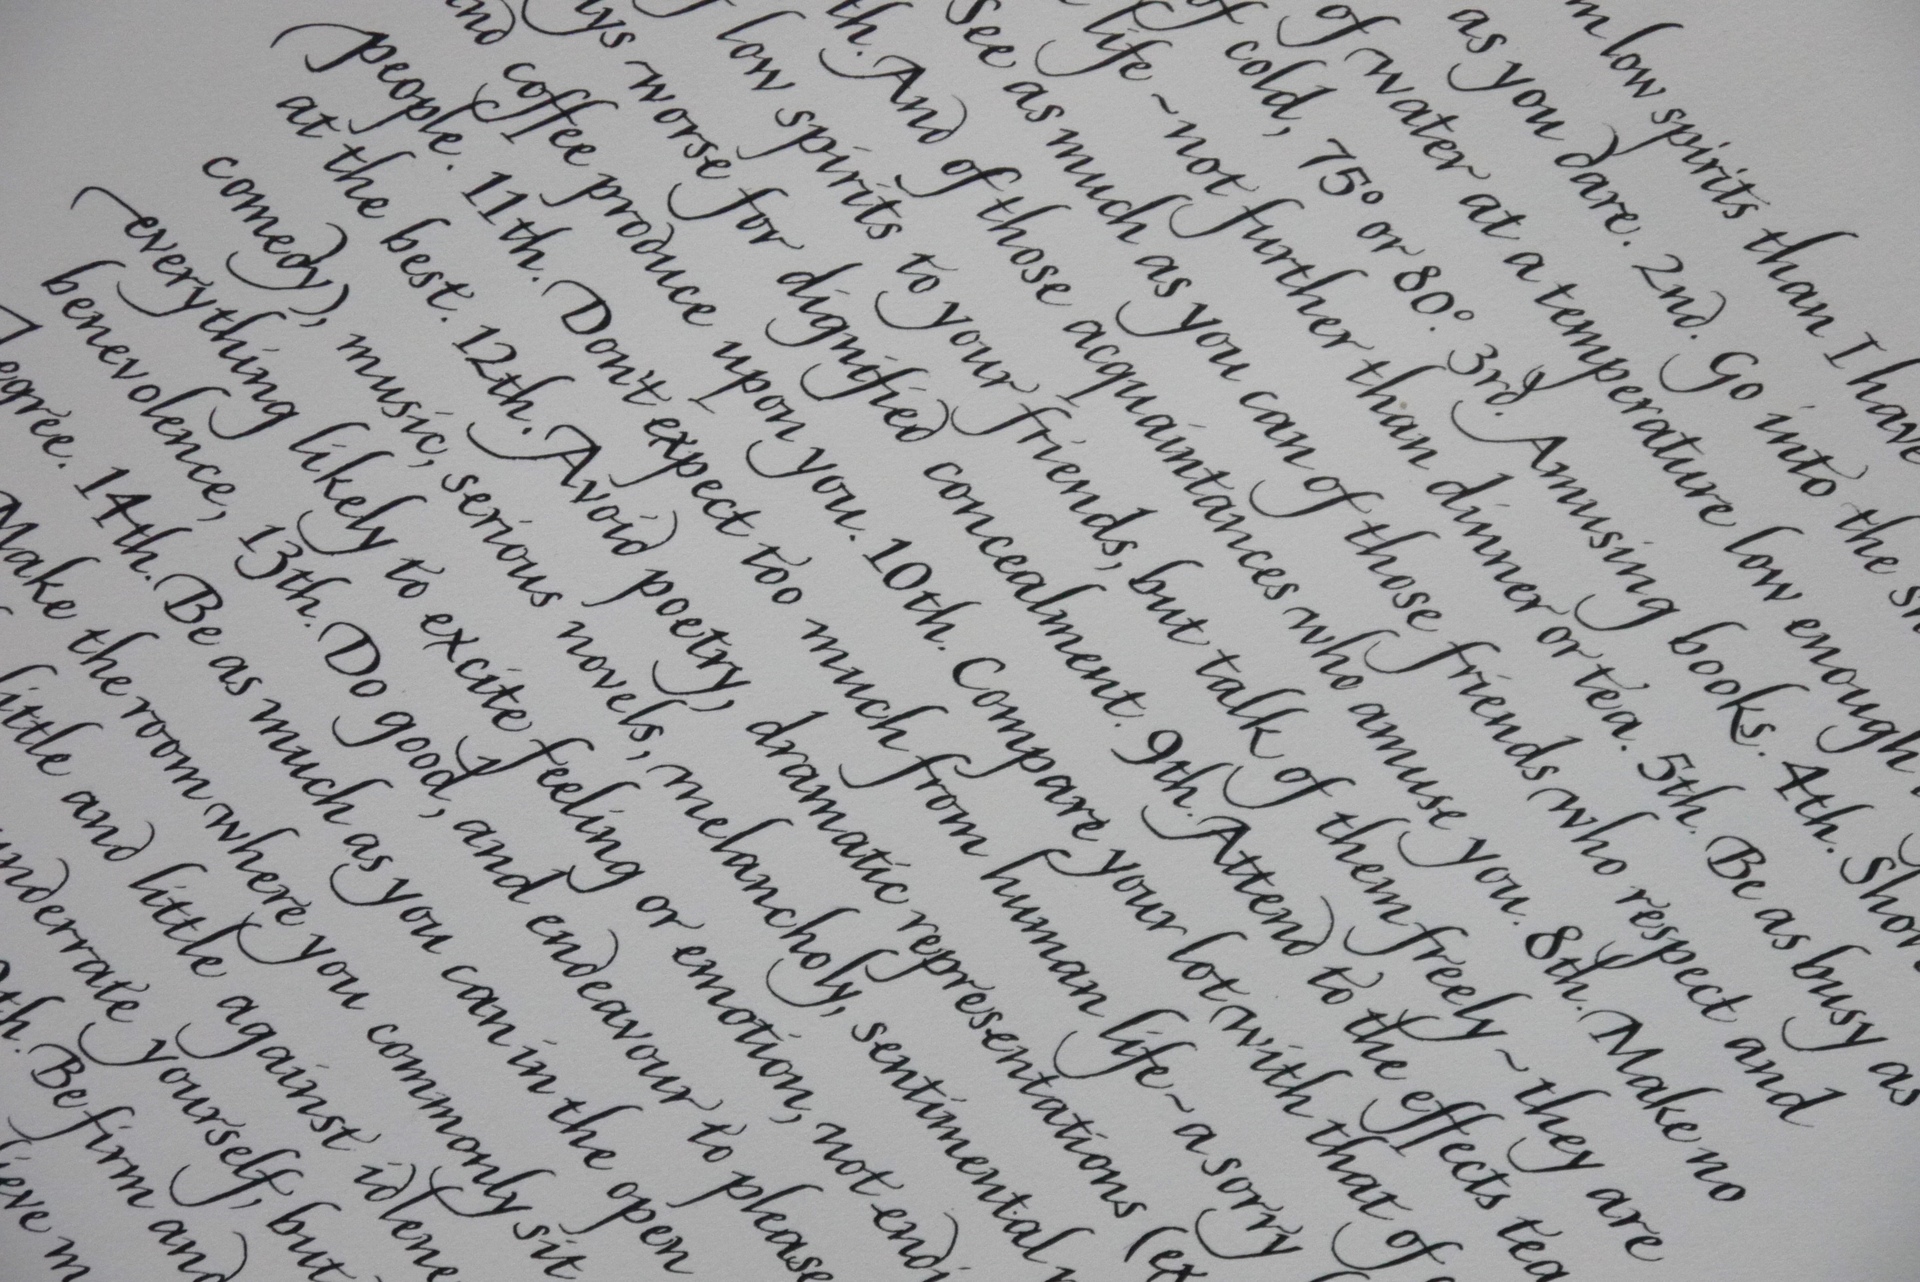 low spirits than I have
as you dare. 2nd. Go into the
of water at a temperature low enough
of cold, 75° or 80°. 3rd. Amusing books. 4th. Shor
life ~ not further than dinner or tea. 5th. Be as busy as
See as much as you can of those friends who respect and
th. And of those acquaintances who amuse you. 8th. Make no
low spirits to your friends, but talk of them freely ~ they are
ys worse for dignified concealment. 9th. Attend to the effects tea
and coffee produce upon you. 10th. Compare your lot with that of
people. 11th. Don't expect too much from human life ~ a sorry
at the best. 12th. Avoid poetry, dramatic representations (ex
comedy), music, serious novels, melancholy, sentimental
everything likely to excite feeling or emotion, not endi
benevolence, 13th. Do good, and endeavour to please
egree. 14th. Be as much as you can in the open
Make the room where you commonly sit
little and little against idlene
underrate yourself, but
th. Be firm and
ieve m